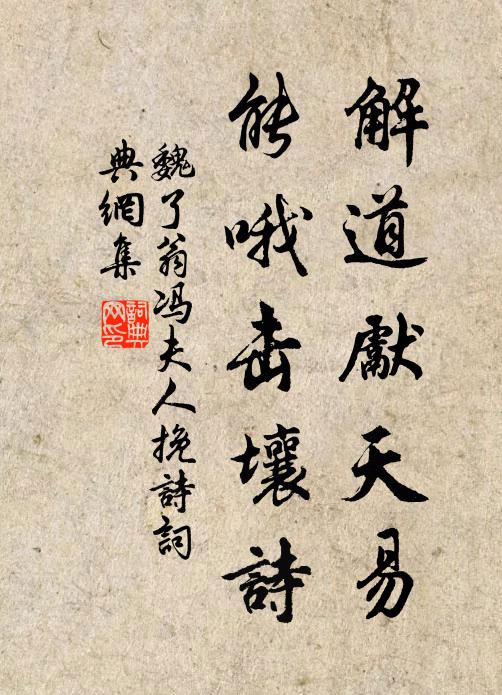 解道獻天易
能哦击壤詩
魏了翁冯夫人挽詩詞
典網集
詞典網印